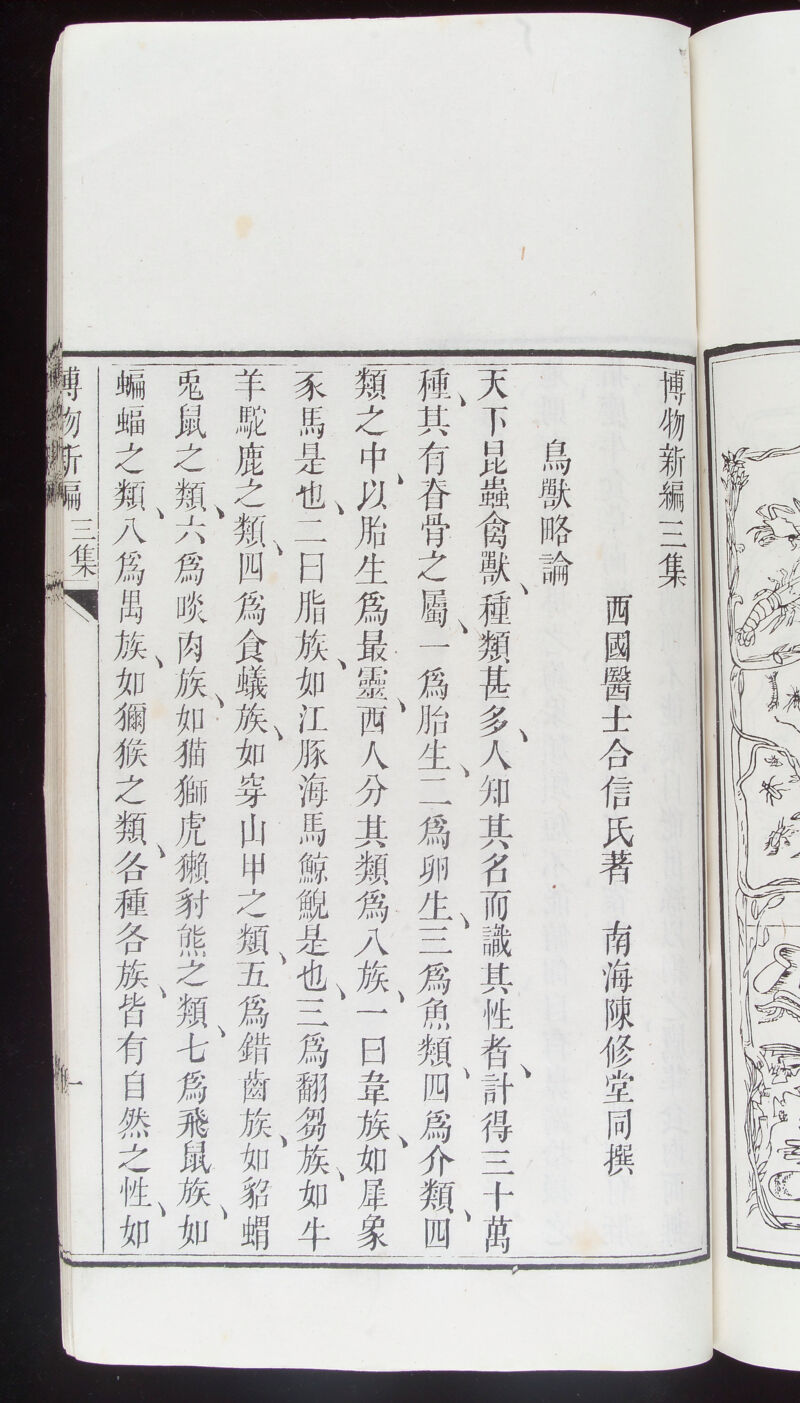 博物新編三集
西國醫士合信氏著　南海陳修堂同撰
鳥獸略論
天下昆蟲禽獸、種類甚多、人知其名而識其性者、計得三十萬
種、其有脊骨之屬、一為胎生、二為卵生、三為魚類、四為介類、四
類之中、以胎生為最靈、西人分其類為八族、一曰韋族、如犀象
豕馬是也、二曰脂族、如江豚海馬鯨鯢是也、三為翻芻族、如牛
羊駝鹿之類、四為食蟻族、如穿山甲之類、五為錯齒族、如貂蝟
兎鼠之類、六為啖肉族、如猫獅虎獺豺熊之類、七為飛鼠族、如
蝙蝠之類、八為禺族、如獼猴之類、各種各族、皆有自然之性、如
博物新編　三集　一